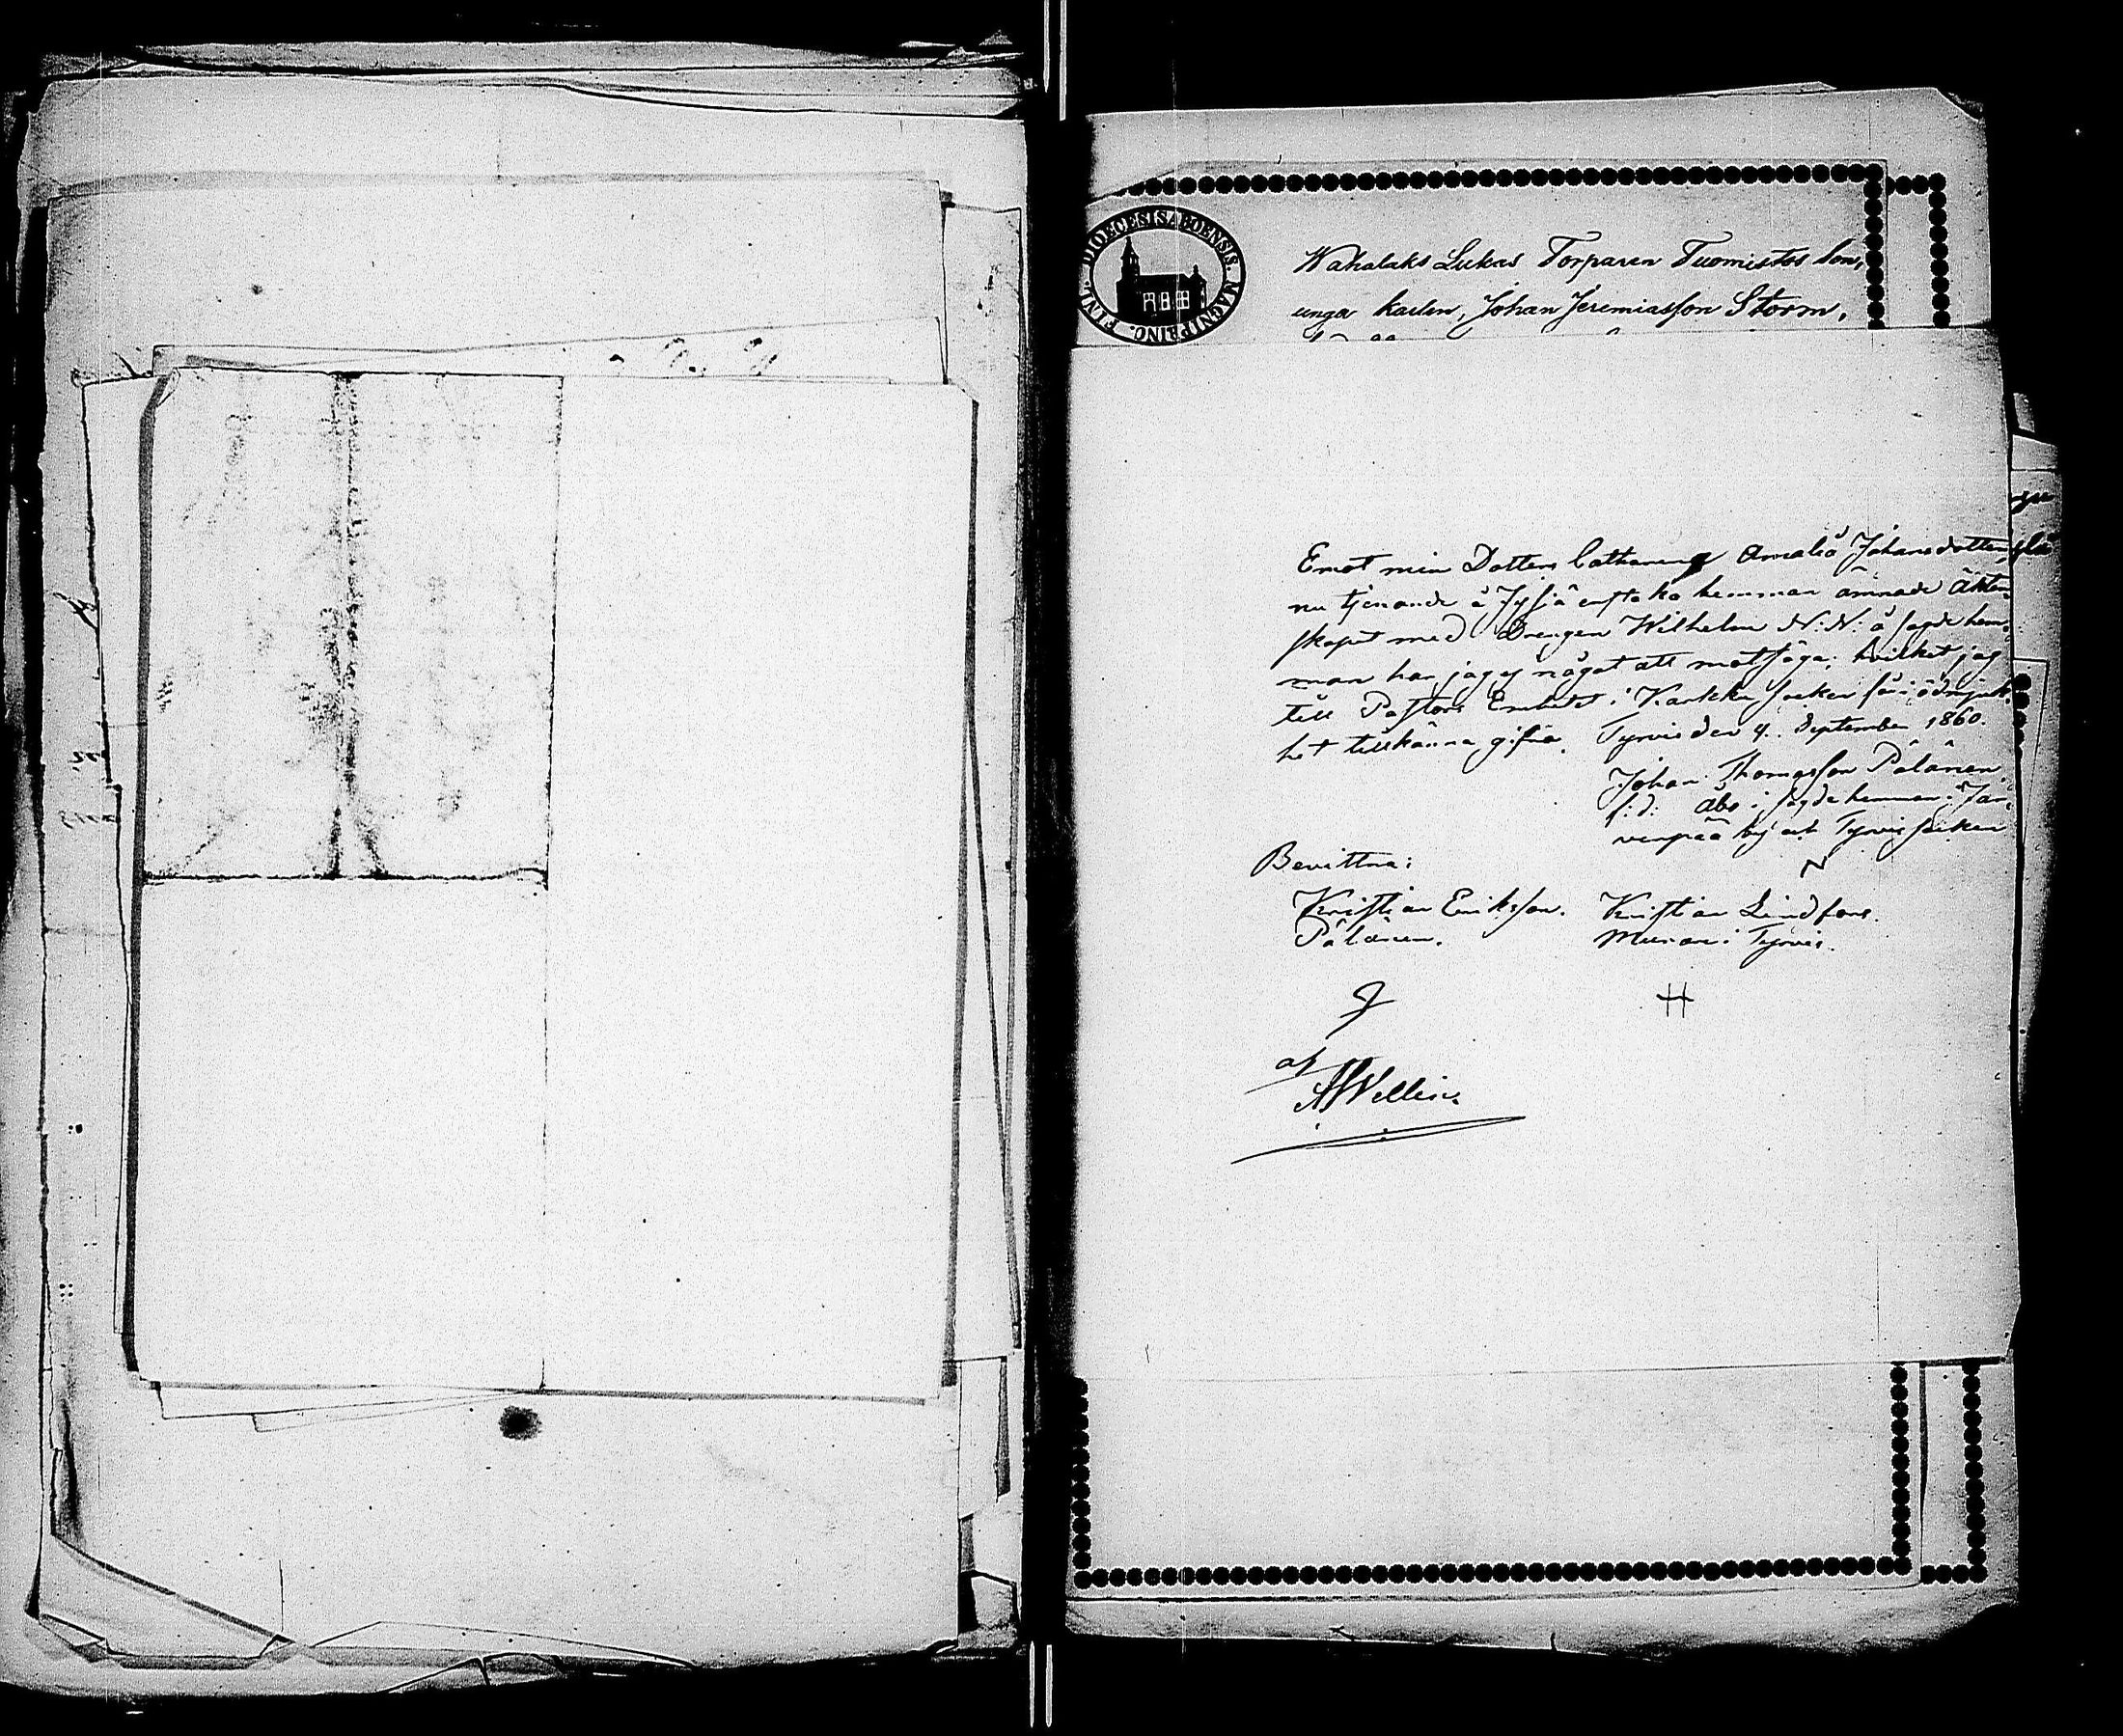 DIOECESIS ABOENSIS. MAGNI PRINC. FINL.
Wahalaks Lukas Torparen Tuomistos son,
unga karlen, Johan Jeremiasson Storm,
Emot min Dotters Catharina Amalia Johansdotter,
nu tjenande å Jyljä enstaka hemman ämnade äkten-
skapet med Drengen Wilhelm N: N: å sagde hem-
man har jag ej något att motsäga; hvilket jag
till Pastors Embetet i Karkku socken får i ödmjuk-
het tillkänna gifva. Tyrvis den 9. September 1860.
Johan Thomasson Pälänen,
f: d: Åbo i sagde hemman i Jär-
venpää by ach Tyrvis socken
Bevittna:
Kristian Eriksson. Kristian Lindfors.
Pälänen. Murare i Tyrvis.
af
Wellin.